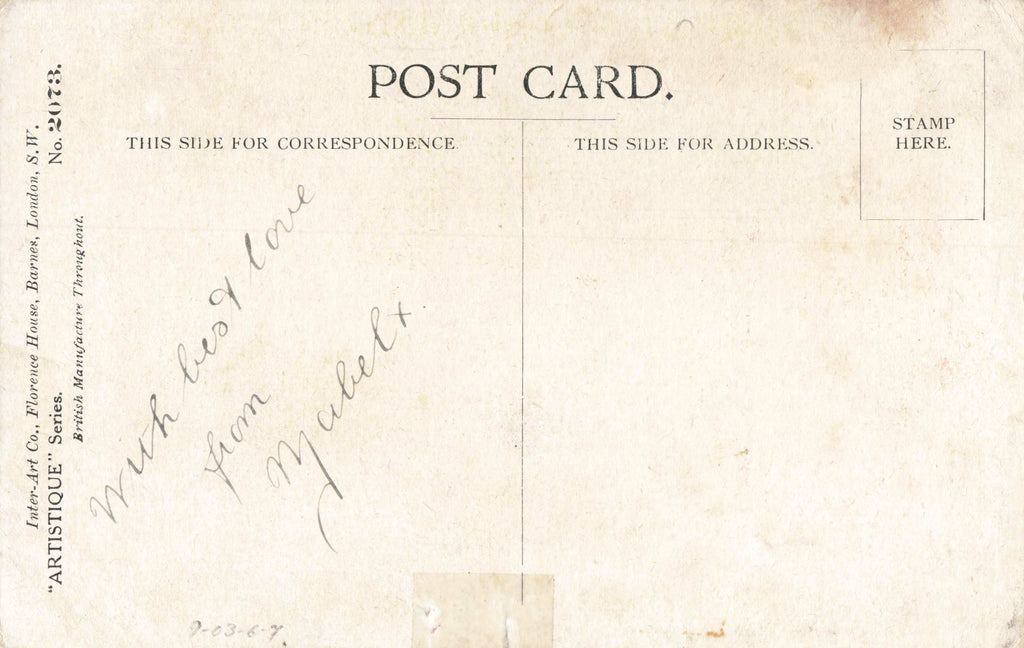 POST CARD.
THIS SIDE FOR CORRESPONDENCE.
THIS SIDE FOR ADDRESS.
STAMP
HERE.
Inter-Art Co., Florence House, Barnes, London, S.W.
"ARTISTIQUE" Series. No. 2073.
British Manufacture Throughout.
With best love
from
Mabel x
9-03-6-7